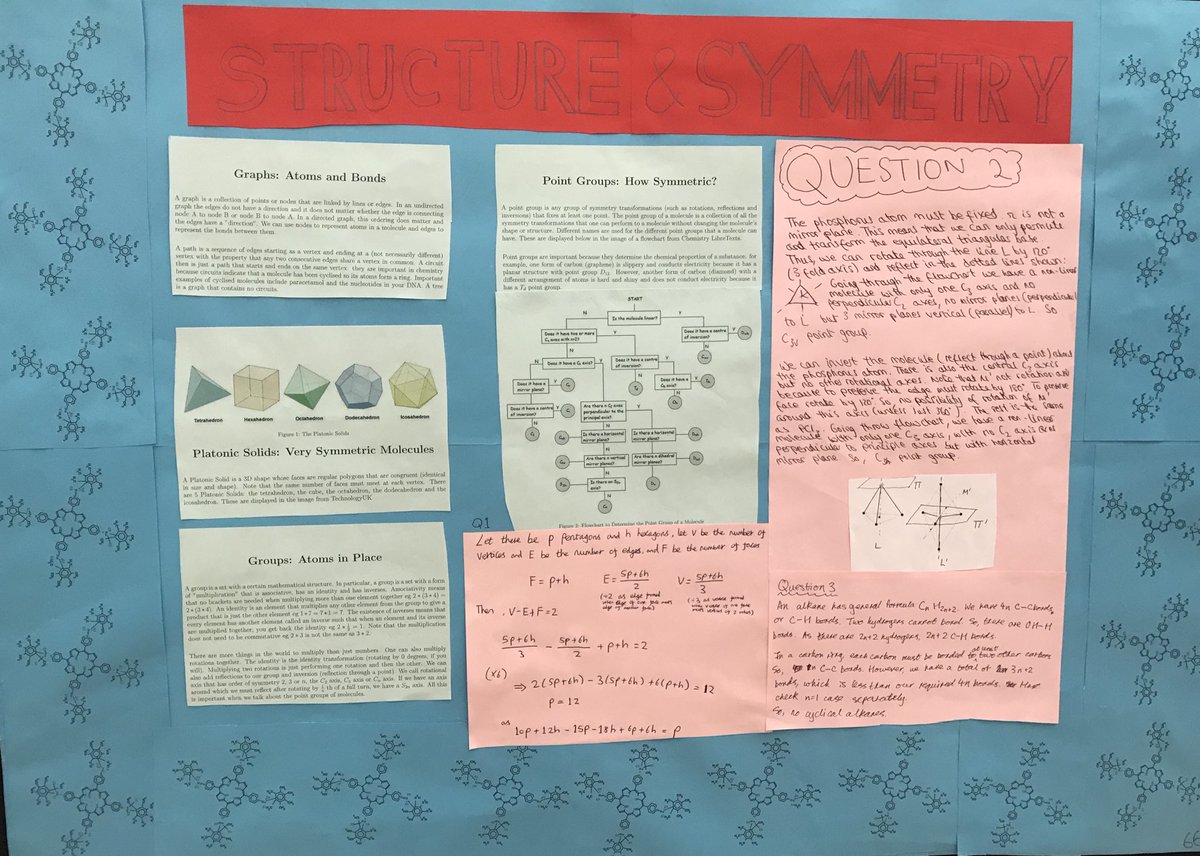 STRUCTURE & SYMMETRY
Graphs: Atoms and Bonds
A graph is a collection of points or nodes that are linked by lines or edges. In an undirected
graph the edges do not have a direction and it does not matter whether the edge is connecting
node A to node B or node B to node A. In a directed graph, this ordering does matter and
the edges have a "direction". We can use nodes to represent atoms in a molecule and edges to
represent the bonds between them.
A path is a sequence of edges starting as a vertex and ending at a (not necessarily different)
vertex with the property that any two consecutive edges share a vertex in common. A circuit
then is just a path that starts and ends on the same vertex. they are important in chemistry
because circuits indicate that a molecule has been cyclised so its atoms form a ring. Important
examples of cyclised molecules include paracetamol and the nucleotides in your DNA. A tree
is a graph that contains no circuits.
Tetrahedron Hexahedron Octahedron Dodecahedron Icosahedron
Figure 1: The Platonic Solids
Platonic Solids: Very Symmetric Molecules
A Platonic Solid is a 3D shape whose faces are regular polygons that are congruent (identical
in size and shape). Note that the same number of faces must meet at each vertex. There
are 5 Platonic Solids: the tetrahedron, the cube, the octahedron, the dodecahedron and the
icosahedron. These are displayed in the image from TechnologyUK
Groups: Atoms in Place
A group is a set with a certain mathematical structure. In particular, a group is a set with a form
of "multiplication" that is associative, has an identity and has inverses. Associativity means
that no brackets are needed when multiplying more than one element together eg 2 * (3 * 4) =
2 * (3 * 4). An identity is an element that multiplies any other element from the group to give a
product that is just the other element eg 1 * 7 = 7 * 1 = 7. The existence of inverses means that
every element has another element called an inverse such that when an element and its inverse
are multiplied together, you get back the identity eg 2 * ½ = 1. Note that the multiplication
does not need to be commutative eg 2 * 3 is not the same as 3 * 2.
There are more things in the world to multiply than just numbers. One can also multiply
rotations together. The identity is the identity transformation (rotating by 0 degrees, if you
will). Multiplying two rotations is just performing one rotation and then the other. We can
also add reflections to our group and inversion (reflection through a point) We call rotational
axis that has order of symmetry 2, 3 or n, the C2 axis, C3 axis or Cn axis. If we have an axis
around which we must reflect after rotating by 1/n th of a full turn, we have a Sn axis. All this
is important when we talk about the point groups of molecules.
Point Groups: How Symmetric?
A point group is any group of symmetry transformations (such as rotations, reflections and
inversions) that fixes at least one point. The point group of a molecule is a collection of all the
symmetry transformations that one can perform to a molecule without changing the molecule's
shape or structure. Different names are used for the different point groups that a molecule can
have. These are displayed below in the image of a flowchart from Chemistry LibreTexts.
Point groups are important because they determine the chemical properties of a substance. for
example, one form of carbon (graphene) is slippery and conducts electricity because it has a
planar structure with point group D
However, another form of carbon (diamond) with a
different arrangement of atoms is hard and shiny and does not conduct electricity because it
has a Td point group.
START
Is the molecule linear?
Does it have two or more
Cn axes with n>2?
Does it have a centre
of inversion?
Does it have a C axis?
Does it have a centre
of inversion?
Does it have a
mirror plane?
Does it have a
C5 axis?
Does it have a centre
of inversion?
Are there n C2 axes
perpendicular to the
principal axis?
Is there a horizontal
mirror plane?
Is there a horizontal
mirror plane?
Are there n vertical
mirror planes?
Are there n dihedral
mirror planes?
Is there an S2n
axis?
Figure 2: Flowchart to Determine the Point Group of a Molecule
Q1
Let there be p pentagons and h hexagons, let V be the number of
vertices and E be the number of edges, and F be the number of faces
F = p+h E = 5p+6h / 2 V = 5p+6h / 3
(÷2 as edge formed
when edge of one face meets
edge of another face)
Then, V-E+F=2
5p+6h / 3 - 5p+6h / 2 + p+h = 2
(×6)
⇒ 2(5p+6h) - 3(5p+6h) + 6(p+h) = 12
p = 12
as
10p + 12h - 15p - 18h + 6p + 6h = p
QUESTION 2
The phosphorus atom must be fixed. π is not a
mirror plane. This means that we can only permute
and transform the equilateral triangular base.
Thus, we can rotate through the line L by 120°
(3 fold axis) and reflect in the dotted lines shown:
Going through the flowchart we have a non-linear
molecule with only one C3 axis and no
perpendicular C2 axes, no mirror planes (perpendicular)
to L but 3 mirror planes vertical (parallel) to L. So
C3v point group.
We can invert the molecule (reflect through a point) about
the phosphorus atom. There is also the central C3 axis
but no other rotational axes. Note that M' not rotation axis
because to preserve the edge must rotate by 180°. To preserve
face rotate by 120°. So, no possibility of rotation of M'
around this axis (unless full 360°). The rest is the same
as PCl3. Going throw flowchart, we have a non-linear
molecule with only one C3 axis, with no C2 axis
perpendicular to principle axes but with horizontal
mirror plane. So, C3h point group.
π
L
M'
π'
L'
Question 3
An alkane has general formula CnH2n+2. We have 4n C-C bonds
or C-H bonds. Two hydrogens cannot bond. So, there are 0 H-H
bonds. As there are 2n+2 hydrogens, 2n+2 C-H bonds.
In a carbon ring, each carbon must be bonded to at least two other carbons
So, n C-C bonds. However, we have a total of 3n+2
bonds, which is less than our required 4n bonds.
check n=1 case separately.
So, no cyclical alkanes.